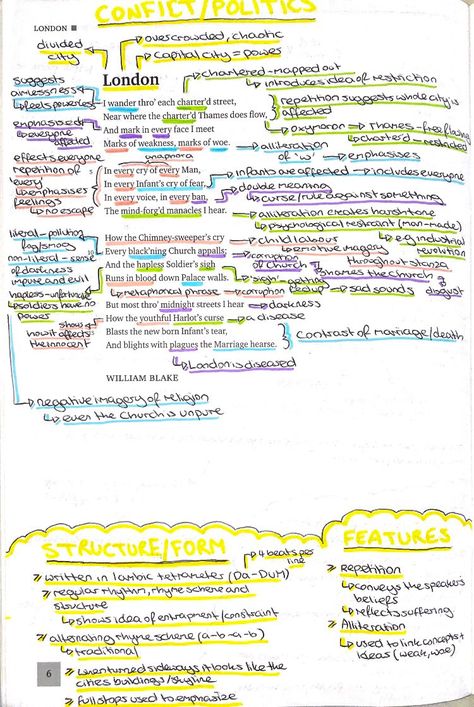 CONFLICT/POLITICS
LONDON
divided city
overcrowded, chaotic
capital city = power
London
chartered - mapped out
introduces idea of restriction
suggests aimlessness
feels powerless
I wander thro' each charter'd street,
Near where the charter'd Thames does flow,
And mark in every face I meet
Marks of weakness, marks of woe.
repetition suggests whole city is affected
oxymoron
Thames - free flowing
charter'd - restricted
emphasised
everyone affected
alliteration of 'w'
emphasises
anaphora
effects everyone
repetition of every
emphasises feelings
no escape
In every cry of every Man,
In every Infant's cry of fear,
In every voice, in every ban,
The mind-forg'd manacles I hear.
infants are affected
includes everyone
double meaning
curse/rule against something
alliteration creates harsh tone
psychological restraint (man-made)
literal - pollution fog/smog
non-literal - sense of darkness impure and evil
hapless - unfortunate
soldiers have no power
How the Chimney-sweeper's cry
Every black'ning Church appalls;
And the hapless Soldier's sigh
Runs in blood down Palace walls.
child labour
e.g industrial revolution
emotive imagery throughout stanza
corruption of church
shames the church
disgust
'sigh' - getting fed up
sad sounds
metaphorical phrase - corruption
But most thro' midnight streets I hear
How the youthful Harlot's curse
Blasts the new born Infant's tear,
And blights with plagues the Marriage hearse.
darkness
a disease
shows how it affects the innocent
contrast of marriage/death
London is diseased
WILLIAM BLAKE
negative imagery of religion
even the Church is impure
STRUCTURE/FORM
4 beats per line
written in Iambic tetrameter (Da-DUM)
regular rhythm, rhyme scheme and structure
shows idea of entrapment/constraint
alternating rhyme scheme (a-b-a-b)
traditional
when turned sideways it looks like the cities buildings/skyline
full stops used to emphasize
FEATURES
Repetition
conveys the speakers beliefs
reflects suffering
Alliteration
used to link concepts + ideas (weak, woe)
6